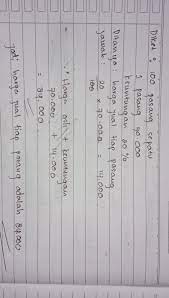 Diket : 100 pasang sepatu
1 pasang 70.000
keuntungan 20%
Ditanya : harga jual tiap pasang
Jawab : 20/100 x 70.000 = 14.000
= Harga beli + keuntungan
70.000 + 14.000
= 84.000
Jadi harga jual tiap pasang adalah 84.000